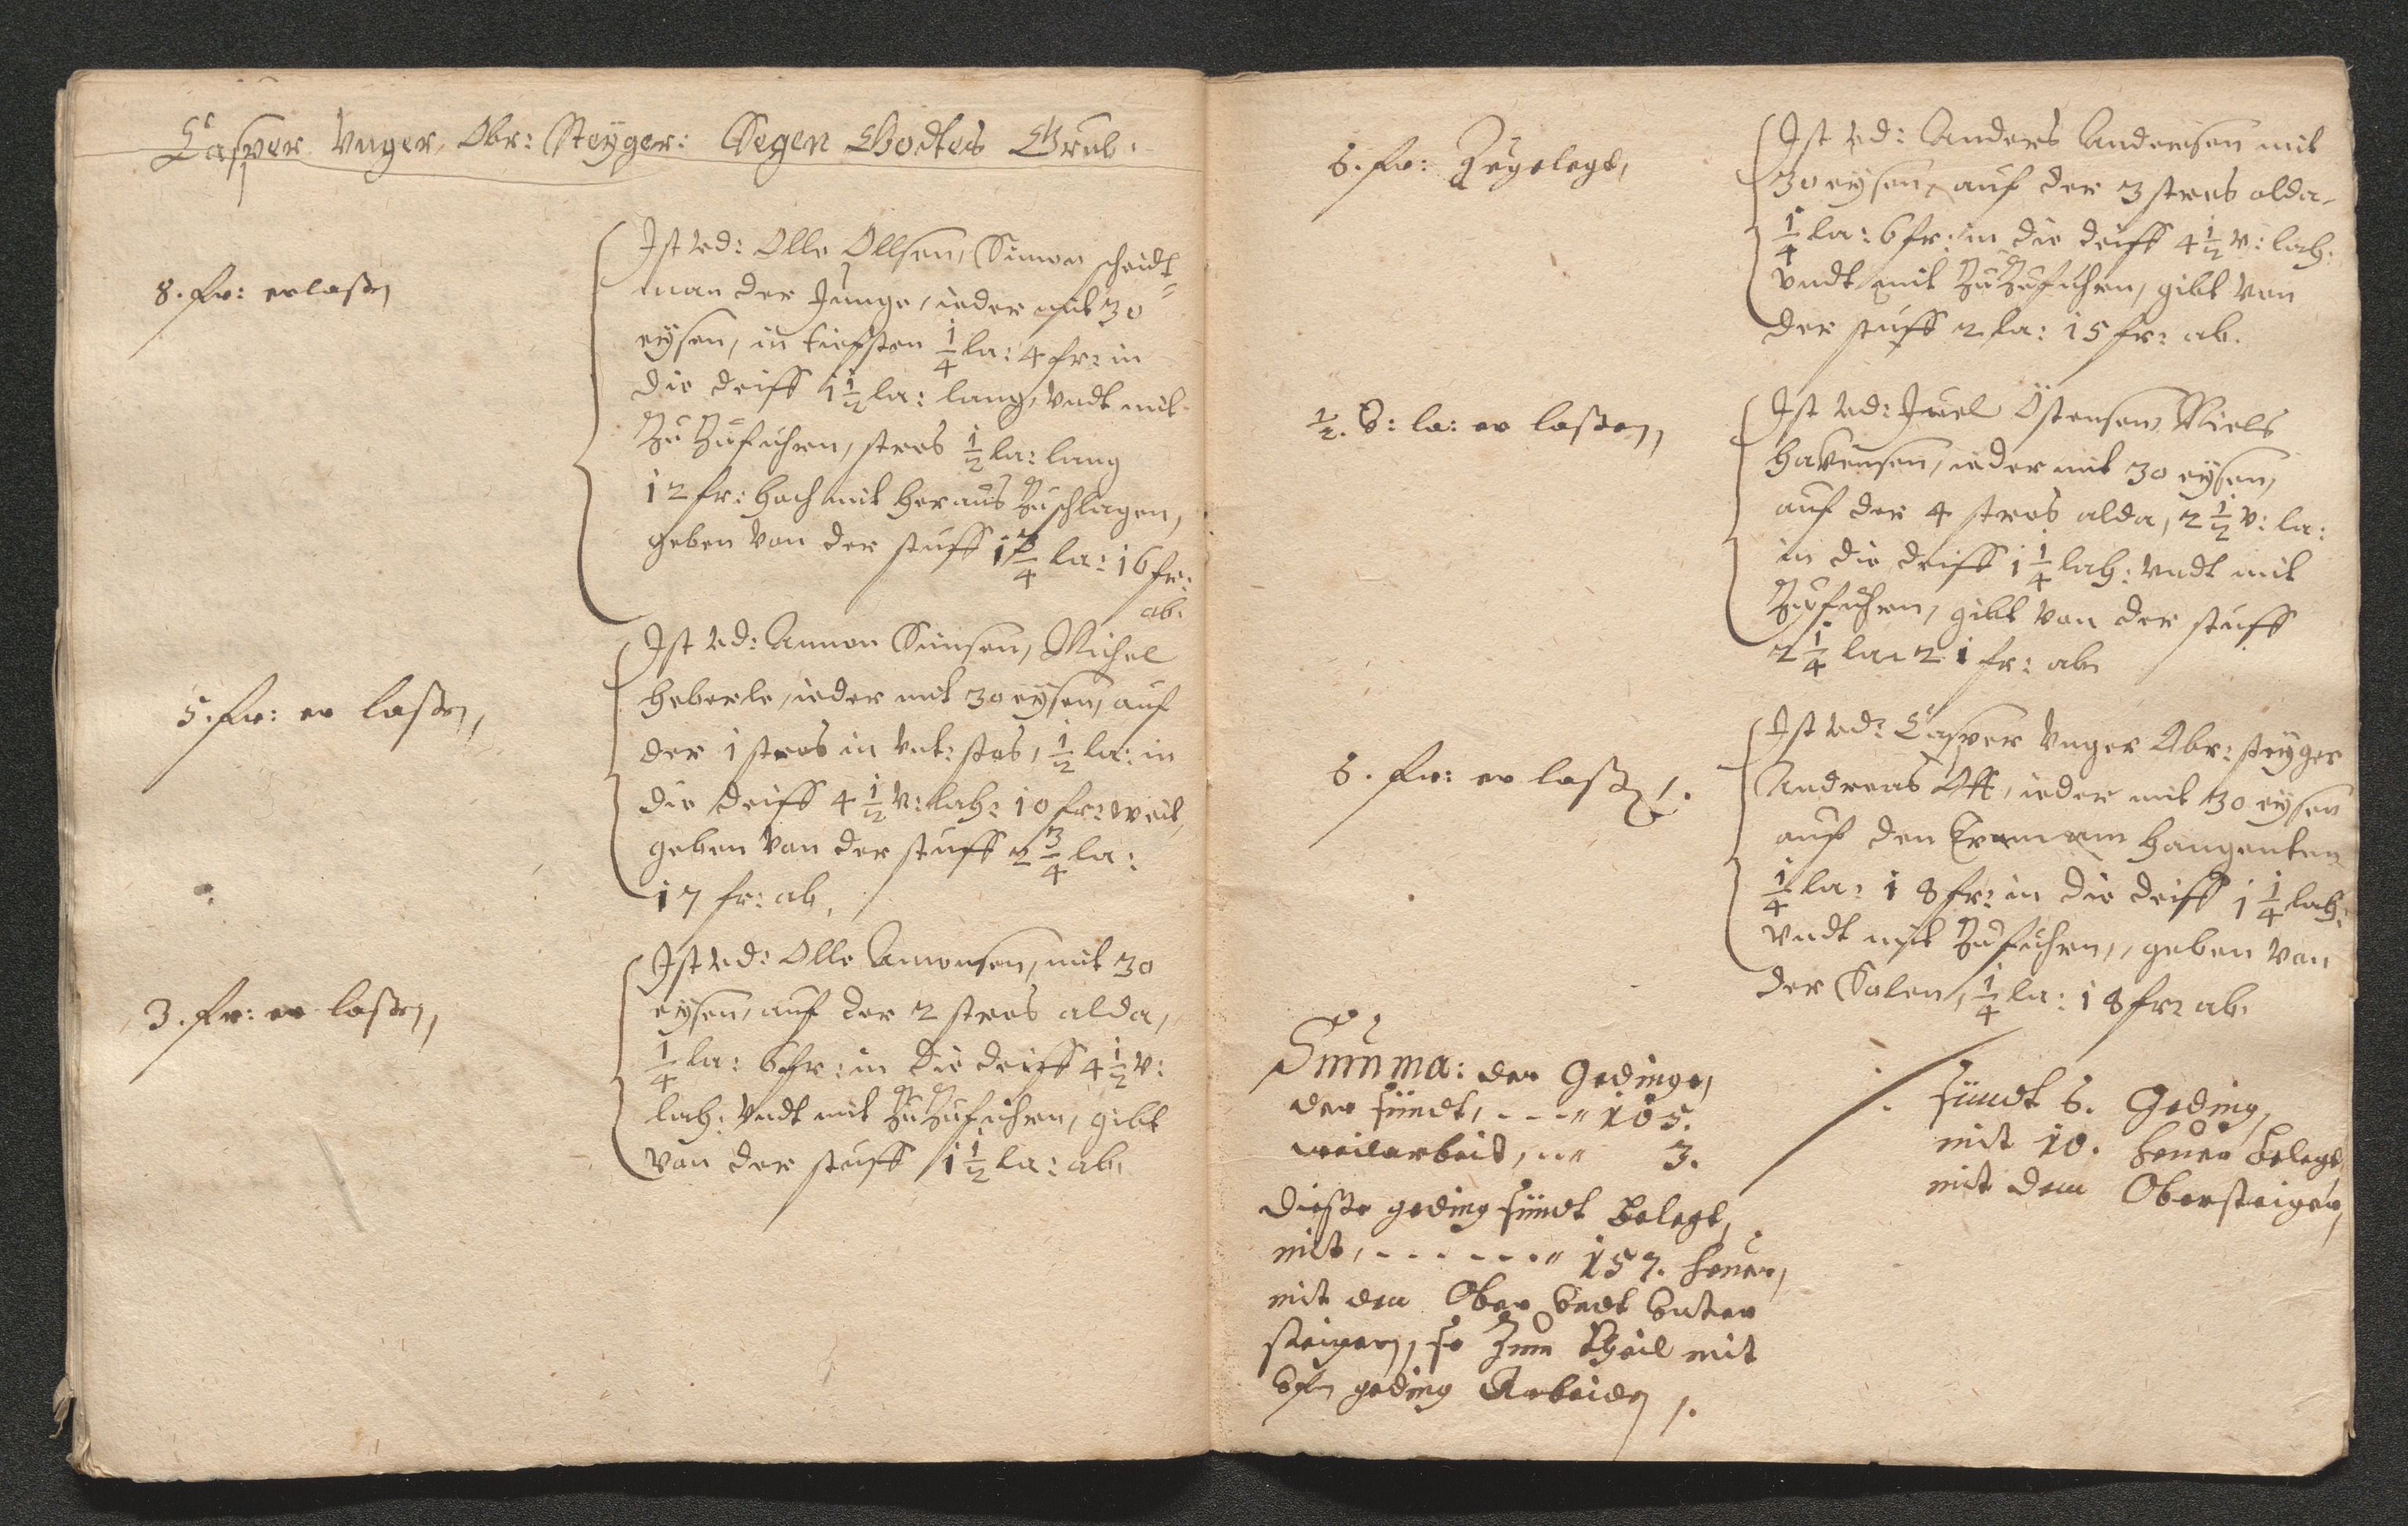 Casper Vnger, Obr: Steÿger: Segen Godtes Grub.
8. fr: erlaßen
Ist vd: Olle Ollsen, Simon scheidt=
man der Junge, ieder mit 30
eÿsen, in tiefsten 1/4 la: 4 fr: in
die deiff 1 1/2 la: lang, vndt mit
Zu Zufuhren, stros 1/2 la: lang
12 fr: hoch mit heraus Zuschlagen,
geben von der stuff 1 3/4 la: 16 fr:
ab.
5. fr: er laßen,
Ist vd: Ammon Simsen, Michel
Heberle, ieder mit 30 eÿsen, auf
der 1 stros in vnt: stos, 1/2 la: in
die deiff 4 1/2 v: lah: 10 fr: weit,
geben von der stuff 2 3/4 la:
17 fr: ab.
3. fr: er laßen,
Ist vd: Olle Amonsen, mit 30
eÿsen, auf der 2 stros alda,
1/4 la: 6 fr: in die deiff 4 1/2 v:
lah: vndt mit Zu Zufuhren, gibt
von der stuff 1 1/2 la: ab.
6. fr: Zugelegt,
Ist vd: Anders Andersen mit
30 eÿsen, auf der 3 stros alda,
1/4 la: 6 fr: in die deiff 4 1/2 v: lah:
vndt mit Zu Zufuhren, gibt von
der stuff 2 la: 15 fr: ab.
1/2. 8: la: er laßen,
Ist vd: Juel Östensen, Niels
Havensen, ieder mit 30 eÿsen,
auf der 4 stros alda, 2 1/2 v: la:
in die deiff 1 1/4 lah: vndt mit
Zufuhren, gibt von der stuff
2 1/4 la: 21 fr: ab.
6. fr: er laßen.
Ist vd: Casper Vnger Obr: steÿger
Andreas Ott, ieder mit 30 eÿsen
auf den am Hangenten
1/4 la: 18 fr: in die deiff 1 1/4 lah:
vndt mit Zufuhren, geben von
der Salen, 1/4 la: 18 fr: ab.
Summa: der Gedinge,
der sündt, - - - " 105.
weilarbeit, " 3.
Dieße geding sündt belegt,
mit, - - - - - - " 157. heuer,
mit den Ober vndt vnter
steigern, so Zum theil mit
geding Arbeiden.
sündt 6. Geding,
mit 10. heuer belegt,
mit dem Obersteiger,